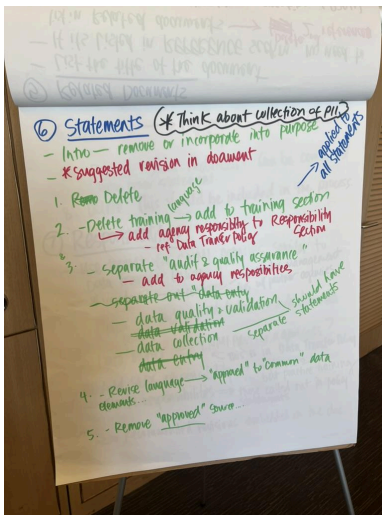 ⑥ Statements (* Think about collection of PII)
- Intro — remove or incorporate into purpose
- * Suggested revision in document
→ applied to all statements
1. Delete
language
2. - Delete training → add to training section
↳ add agency responsiblty to Responsibility Section
- ref Data Transfer Policy
3. - separate "audit & quality assurance"
- add to agency responsibilities
- separate out "data entry
- data quality & validation
data validation
- data collection
data entry
should have separate statements
4. - Revise language → "approved" to "common" data elements...
5. - Remove "approved" source...